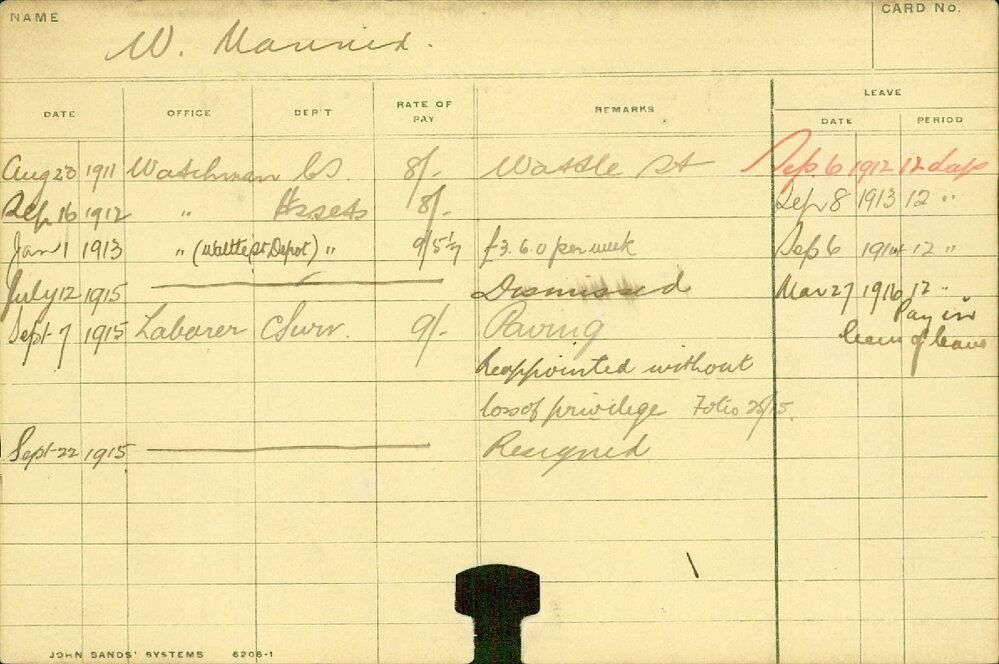 NAME
CARD No.
W.
DATE OFFICE DEP'T RATE OF PAY REMARKS LEAVE
DATE PERIOD
Aug 23 1911 Watchman CS. 8/- Wattle St Sep. 6 1912 12 days
Sep 16 1912 " Assets 8/- Sep 8 1913 12 "
Jan 1 1913 " (Wattle St Depot) " £3.6.0 per week Sep 6 1914 12 "
July 12 1915 Dismissed Mar 27 1916 12 "
Pay in
Sept 7 1915 Laborer C Surv. 9/- Paving lieu of leave
Reappointed without
loss of privilege Folio 25/15.
Sept 22 1915 Resigned
JOHN SANDS' SYSTEMS 6206-1